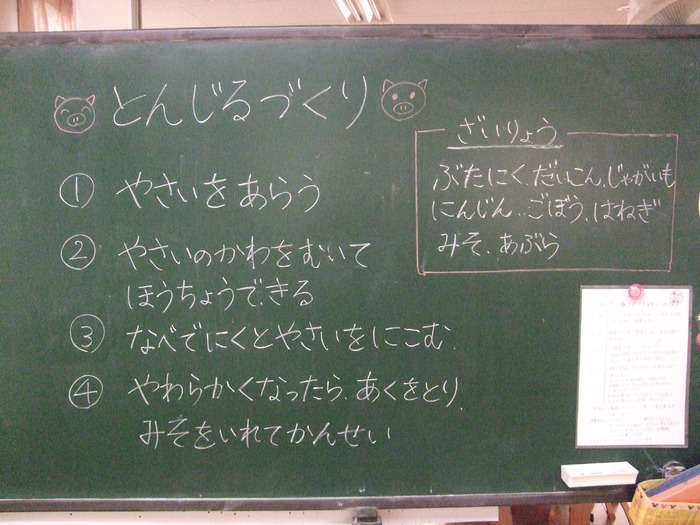 とんじるづくり
① やさいをあらう
② やさいのかわをむいて
ほうちょうできる
③ なべでにくとやさいをにこむ
④ やわらかくなったら、あくをとり、
みそをいれてかんせい
ざいりょう
ぶたにく、だいこん、じゃがいも
にんじん、ごぼう、はねぎ
みそ、あぶら